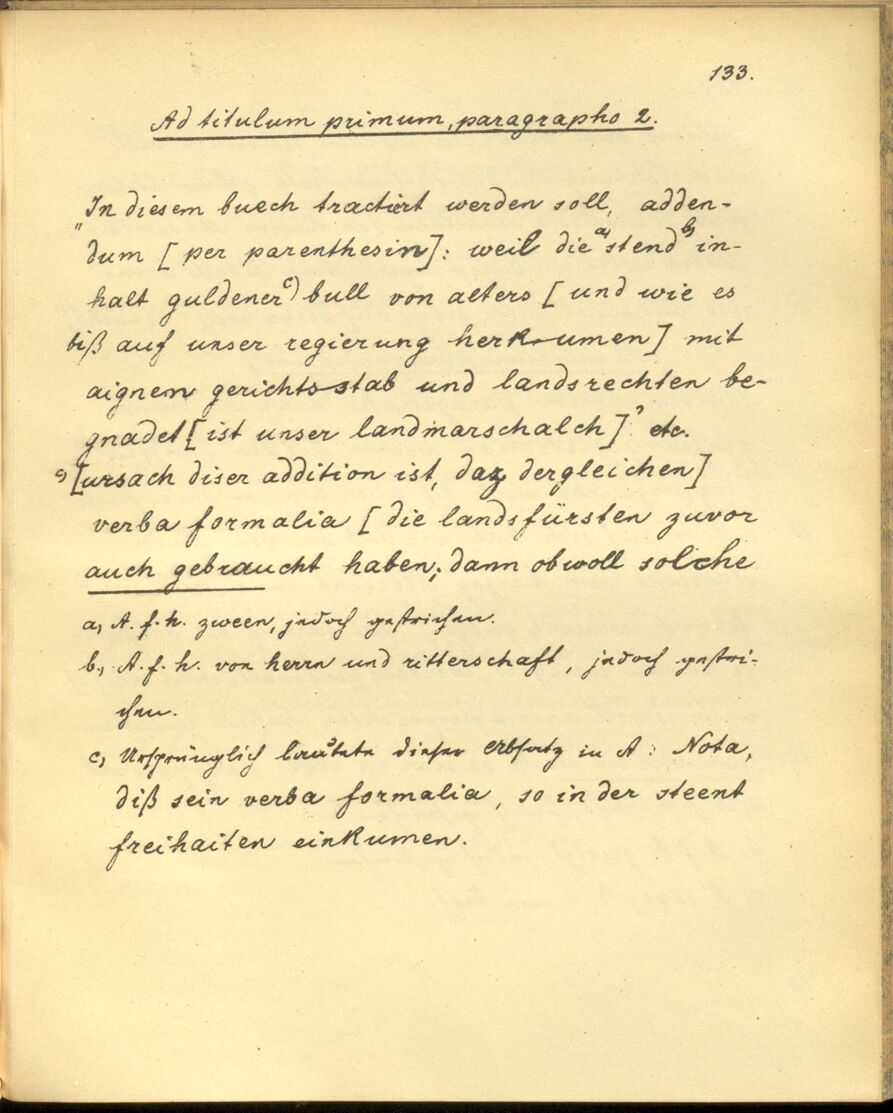 133.
Ad titulum primum, paragrapho 2.
„In diesem buech tractirt werden soll, adden-
dum [per parenthesin]: weil die a) stend b) in-
halt guldener c) bull von alters [und wie es
biß auf unser regierung herkumen] mit
aignem gerichtsstab und landsrechten be-
gnadet [ist unser landmarschalch]" etc.
c) [ursach diser addition ist, daz dergleichen]
verba formalia [die landsfürsten zuvor
auch gebraucht haben; dann obwoll solche
a, A. f. h. zween, jedoch gestrichen.
b, A. f. h. von herrn und ritterschaft, jedoch gestri-
chen.
c, Ursprünglich lautete dieser Absatz in A: Nota,
diß sein verba formalia, so in der steent
freihaiten einkumen.